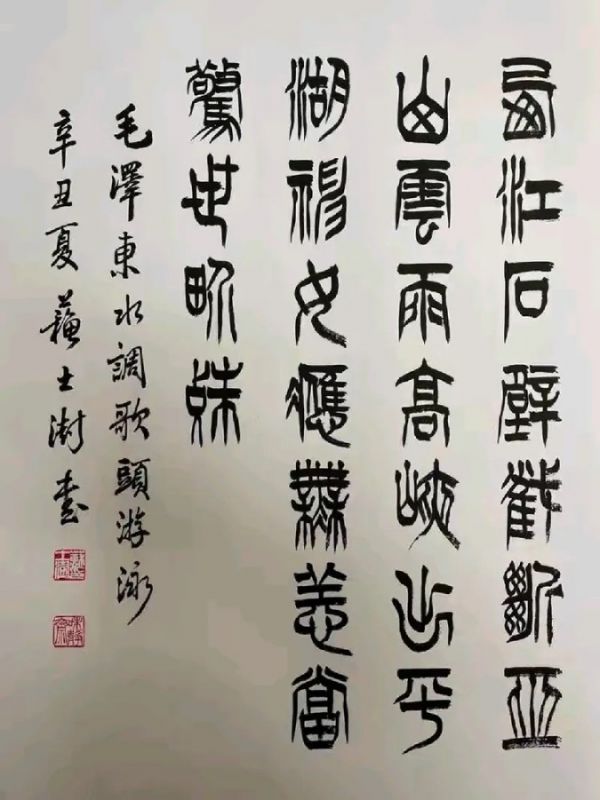 西江石壁截斷巫
山雲雨高峽出平
湖神女應無恙當
驚世界殊
毛澤東水調歌頭游泳
辛丑夏蘇士澍書